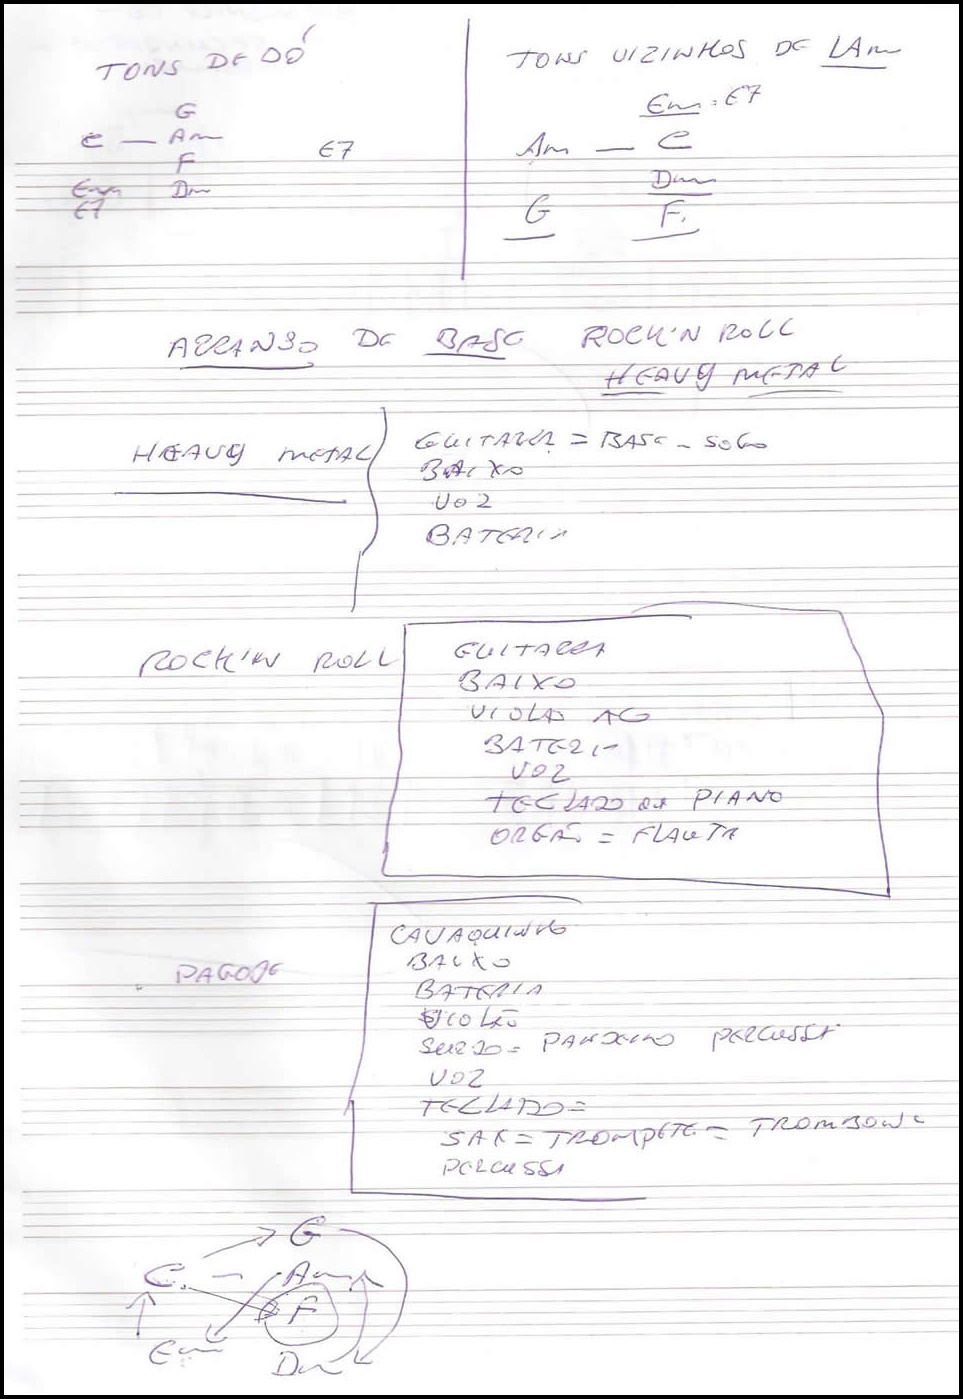 TONS DE DÓ
G
C — Am
F
E7
Em Dm
E7
TONS VIZINHOS DE LAm
Em = E7
Am — C
Dm
G F.
ARRANJO DE BASE ROCK'N ROLL
HEAVY METAL
HEAVY METAL
GUITARRA = BASE - SOLO
BAIXO
VOZ
BATERIA
ROCK'N ROLL
GUITARRA
BAIXO
VIOLÃO AÇO
BATERIA
VOZ
TECLADO ou PIANO
ORGÃO = FLAUTA
PAGODE
CAVAQUINHO
BAIXO
BATERIA
VIOLÃO
SURDO = PANDEIRO PERCUSSÃ
VOZ
TECLADO =
SAX = TROMPETE = TROMBONE
PERCUSSÃ
G
C. — Am
F
Em
Dm